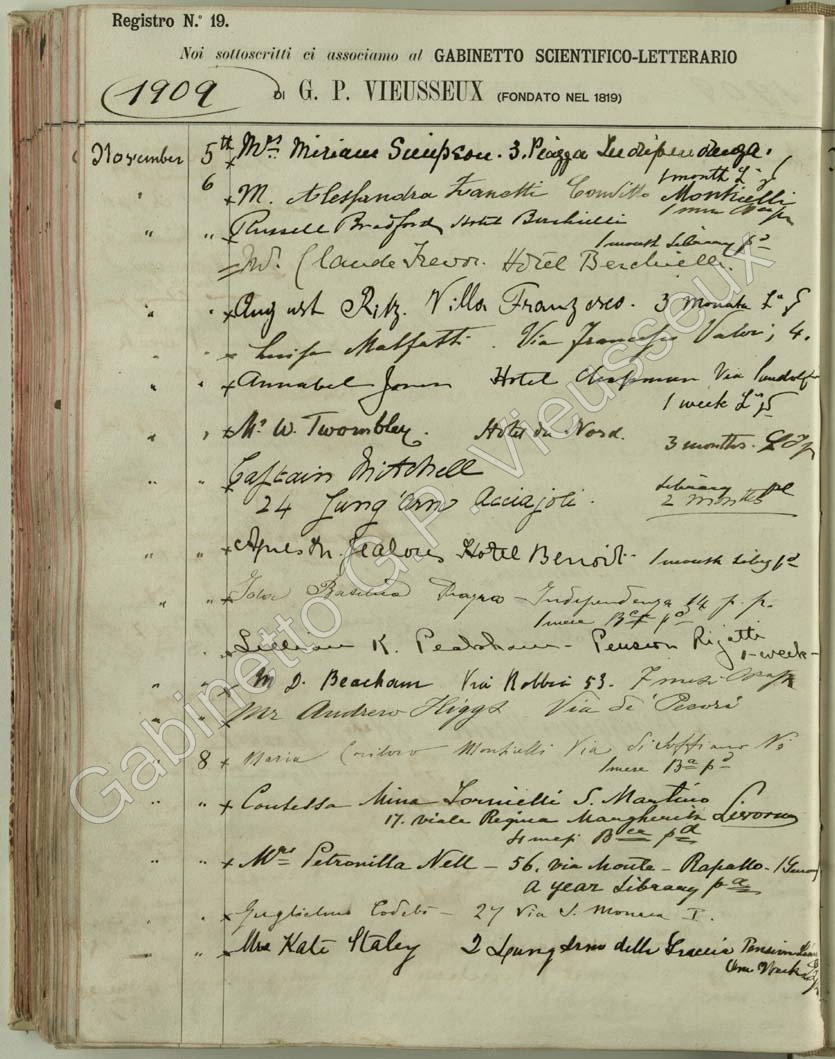 Registro N.º 19.
Noi sottoscritti ci associamo al GABINETTO SCIENTIFICO-LETTERARIO
1909 DI G. P. VIEUSSEUX (FONDATO NEL 1819)
November 5th Mrs Miriam Simpson. 3. Piazza Indipendenza.
1 month
6 M. Alessandra Zanetti Monticelli
" " Russell Bradford Hotel Berchielli
1 month Library pd
Mr. Claude Trevor. Hotel Berchielli.
" " August Ritz. Villa Franzesco. 3 Monate
" Luisa Malfatti. Via Francesco Valori, 4.
" " Annabel Jones Hotel Chapman Via Pandolfini
1 week
" " Mr W. Twombley. Hotel du Nord. 3 months.
" " Captain Mitchell
24 Lung'arno Acciajoli. Library pd
2 months
" " Agnes M. Jealous Hotel Benoit - 1 month Liby pd
" " Basilio Indipendenza 14 p. p.
1 mese Bca pd
" Lillian K. Pension Rigatti
1 - week -
" " M D. Beacham Via Robbia 53.
" " Mr Andrew Higgs Via de' Pecori
" 8 Maria Monticelli Via di Soffiano No
1 mese Ba pd
" " Contessa Mina Tornielli S. Martino
17. Viale Regina Margherita Livorno
4 mesi Bca pd
" " Mrs Petronilla Nell - 56. Via Monte - Rapallo - (Genova
A year Library pd
" Guglielmo Codebò - 27 Via S. Monaca
" Mrs Kate Staley 2 Lung Arno delle Grazie Pension
One Week
Gabinetto G.P. Vieusseux